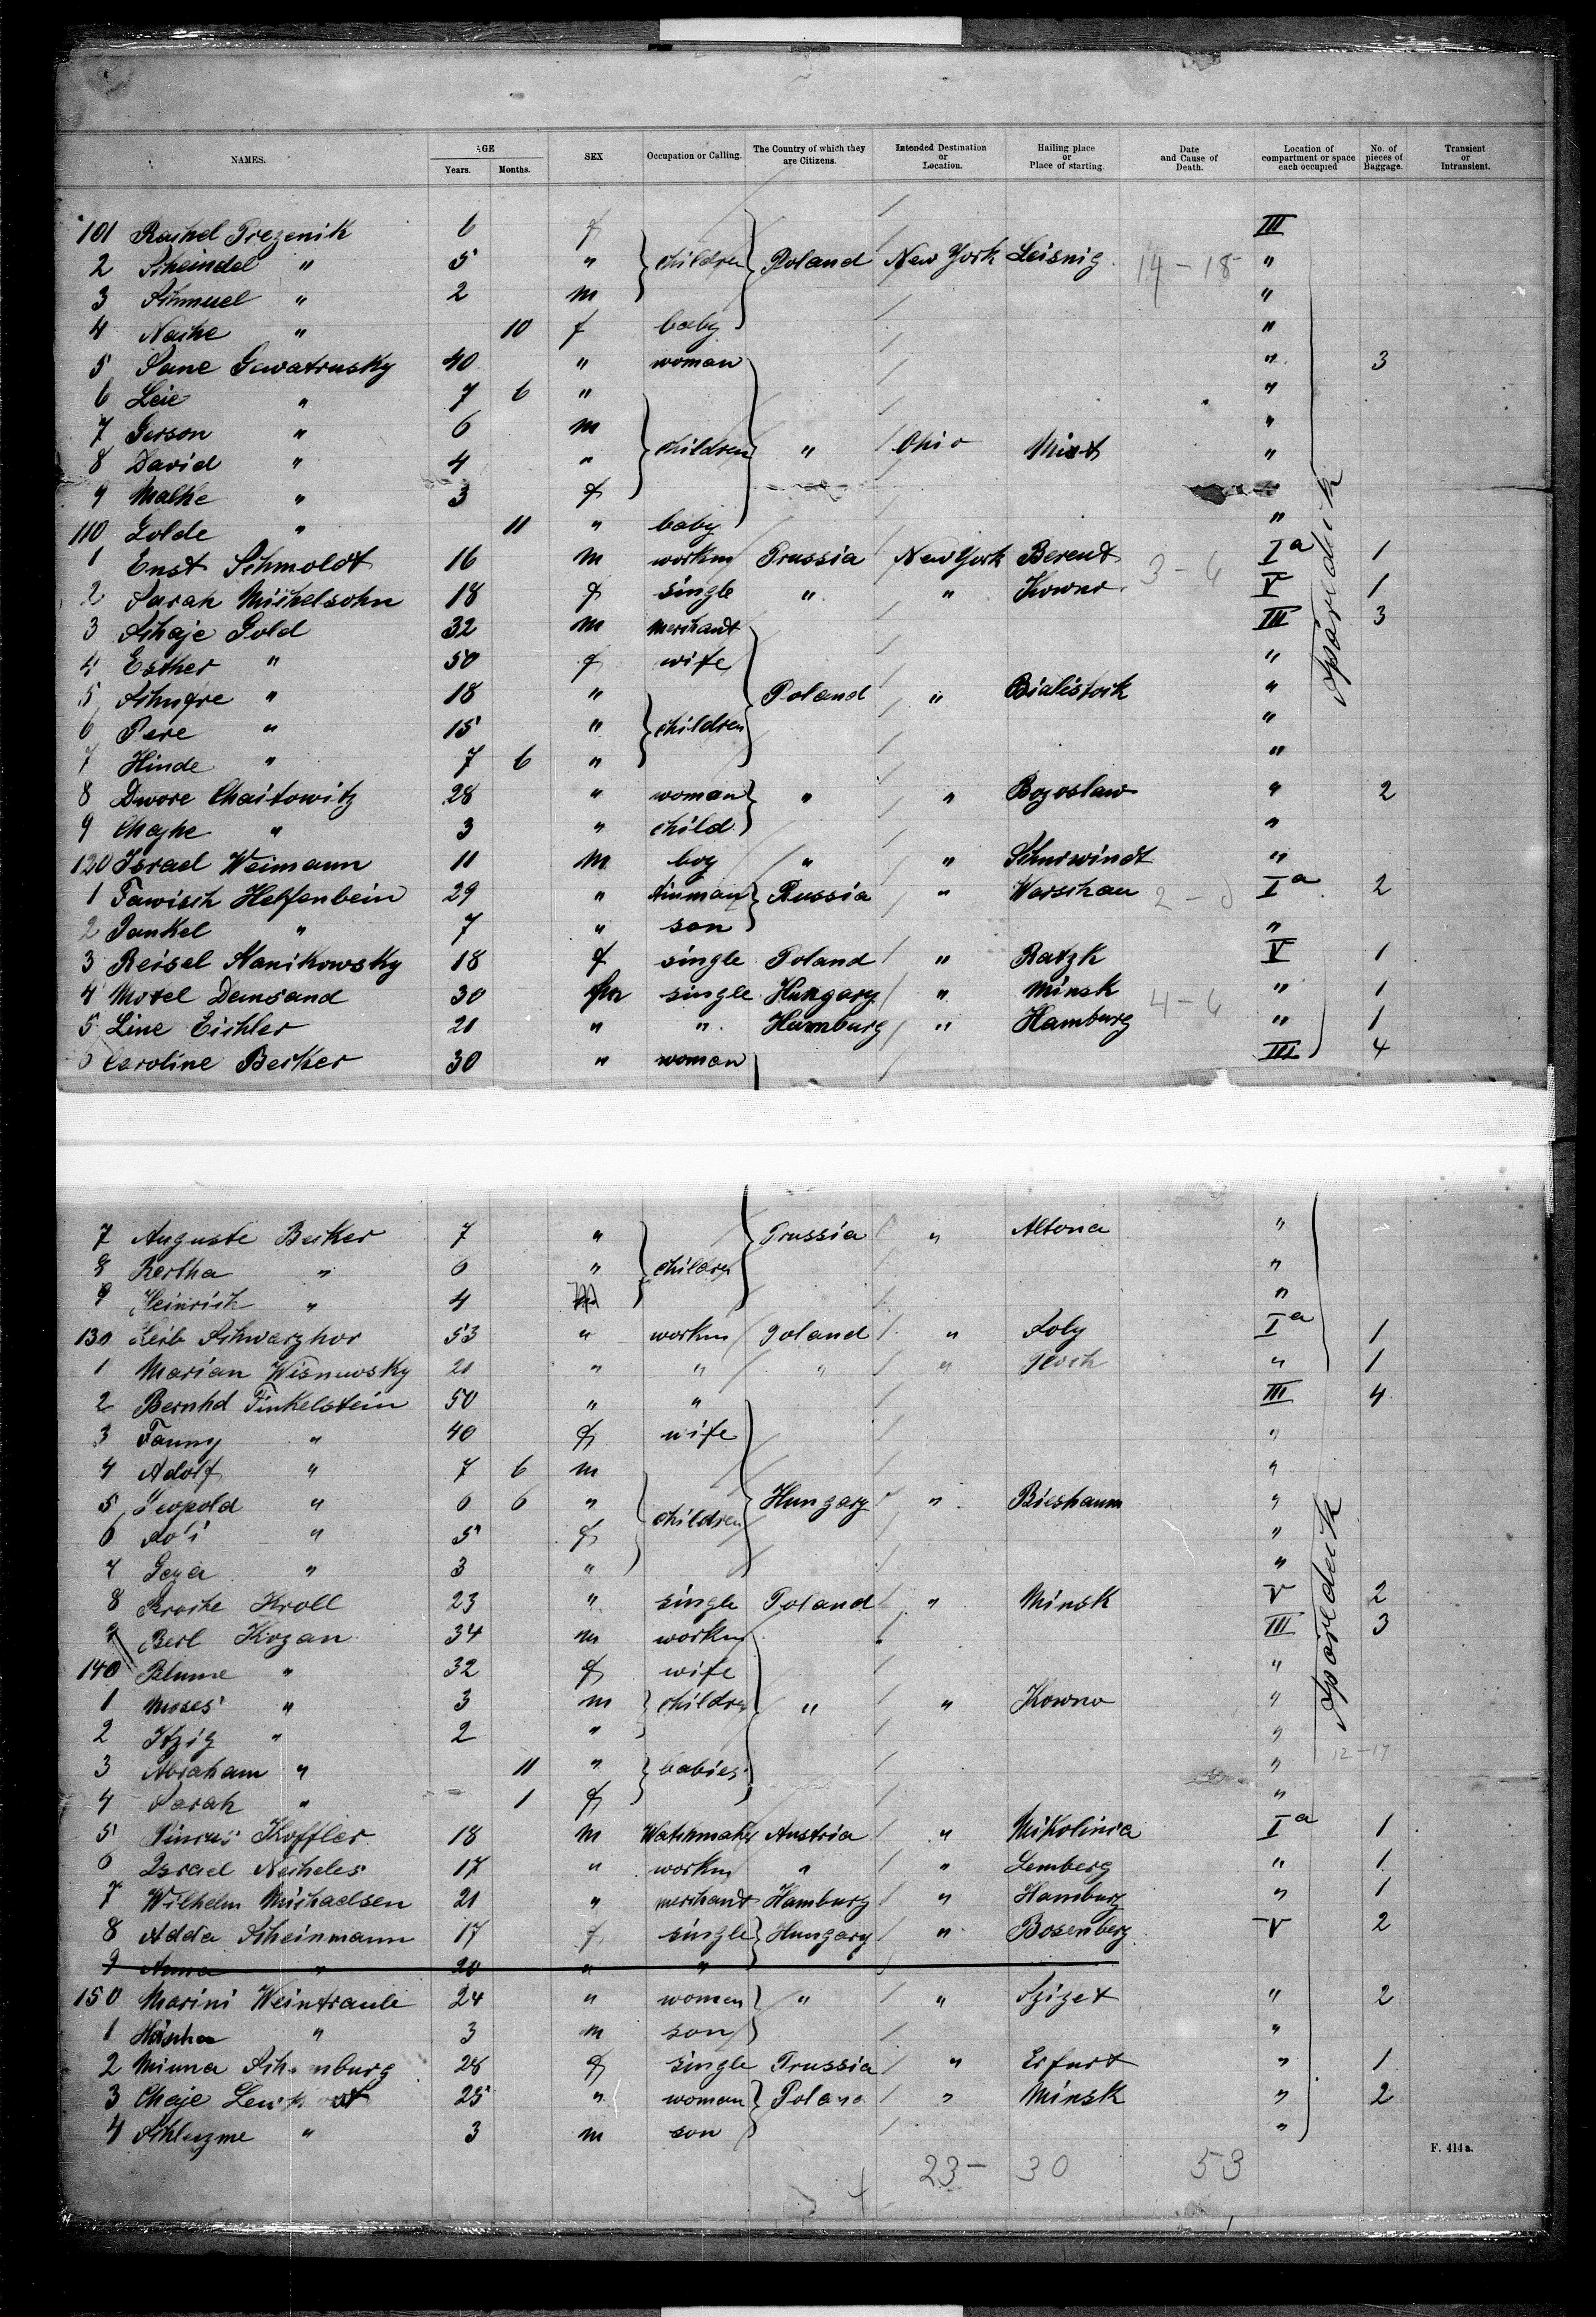 NAMES. AGE Years. Months. SEX Occupation or Calling. The Country of which they are Citizens. Intended Destination or Location. Hailing place or Place of starting. Date and Cause of Death. Location of compartment or space each occupied No. of pieces of Baggage. Transient or Intransient.
101 Rachel Prezenik 6 f III
2 Scheindel " 5 " children Poland New York Leisnig 14-18 "
3 Schmuel " 2 m "
4 Nache " 10 f baby "
5 Sane Gawatrusky 40 " woman " 3
6 Leie " 7 6 " "
7 Gerson " 6 m "
8 David " 4 " children " Ohio "
9 Malke " 3 f "
110 Golde " 11 " baby "
1 Enst Schmoldt 16 m workm Prussia New York Berent 3-6 Ia 1
2 Sarah Michelsohn 18 f single " " Kowno V 1
3 Schaje Gold 32 m merchant III 3
4 Esther " 50 f wife "
5 " 18 " Poland " Bialistock "
6 Pere " 15 " children "
7 Hinde " 7 6 " "
8 Dwore Chaitowitz 28 " woman " " Bogoslaw " 2
9 Chajke " 3 " child "
120 Israel Weimann 11 m boy " " Schirwindt "
1 Fawisch Helfenbein 29 " tinman Russia " Warschau Ia 2
2 Jankel " 7 " son "
3 Reisel Stanikowsky 18 f single Poland " Ratzk V 1
4 Motel Demsand 30 single Hungary " Minsk 4-6 " 1
5 Line Eichler 21 " " Hamburg " Hamburg " 1
6 Caroline Becker 30 " woman III 4
7 Auguste Becker 7 " Prussia " Altona "
8 Bertha " 6 " children "
9 Heinrich " 4 m "
130 Schwarzhor 53 " workm Poland " Ia 1
1 Marian Wisnewsky 21 " " " " Plock " 1
2 Bernhd Finkelstein 50 " " III 4
3 Fanny " 40 f wife "
4 Adolf " 7 6 m "
5 Leopold " 6 6 " children Hungary " "
6 " 5 f "
7 Geza " 3 " "
8 Broche Kroll 23 " single Poland " Minsk V 2
9 Berl Kozan 34 m workm III 3
140 Blume " 32 f wife "
1 Moses " 3 m children " " Kowno "
2 Itzig " 2 " "
3 Abraham " 11 " babies "
4 Sarah " 1 f "
5 Pincus Koffler 18 m Watchmaker Austria " Mikolinca Ia 1
6 Israel Necheles 17 " workm " " Lemberg " 1
7 Wilhelm Michaelsen 21 " merchant Hamburg " Hamburg " 1
8 Adda Scheinmann 17 f single Hungary " Bosenberg V 2
9 Anna " 20 " "
150 Marini Weintraub 24 " woman " " Szizet " 2
1 " 3 m son "
2 Minna 28 f single Prussia " Erfurt " 1
3 Chaje 25 " woman Poland " Minsk " 2
4 " 3 m son "
12-17
F. 414a.
23- 30 53